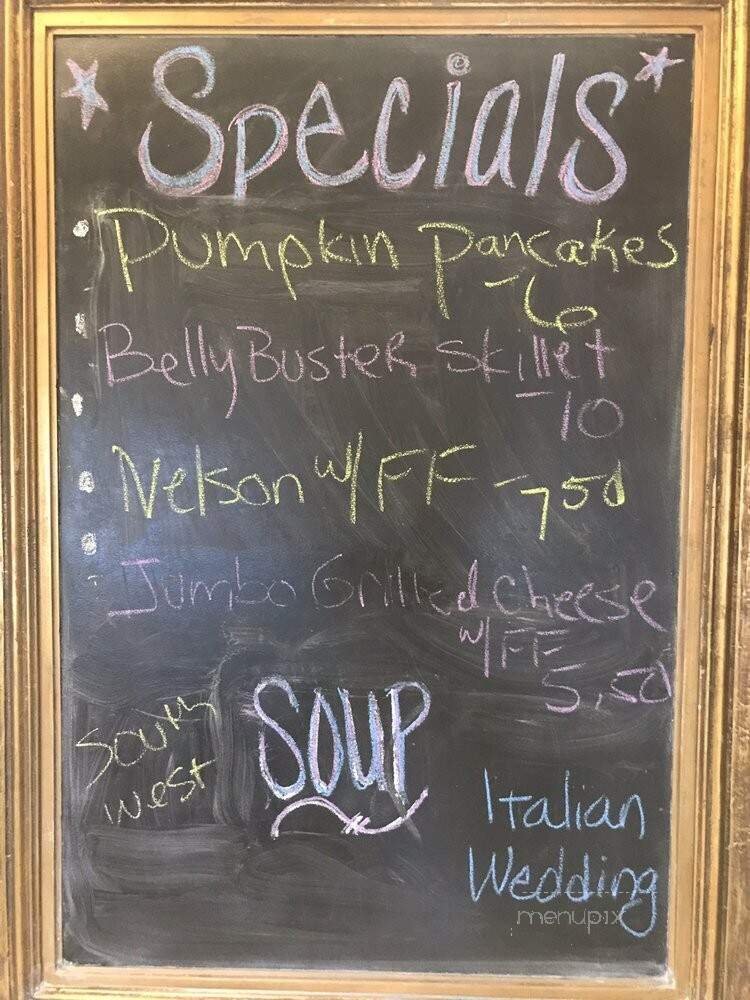 Specials
Pumpkin Pancakes
-6
Belly Buster Skillet
-10
Nelson w/ FF -750
Jumbo Grilled Cheese
w/ FF
5.50
South
west
SOUP
Italian
Wedding
menupix